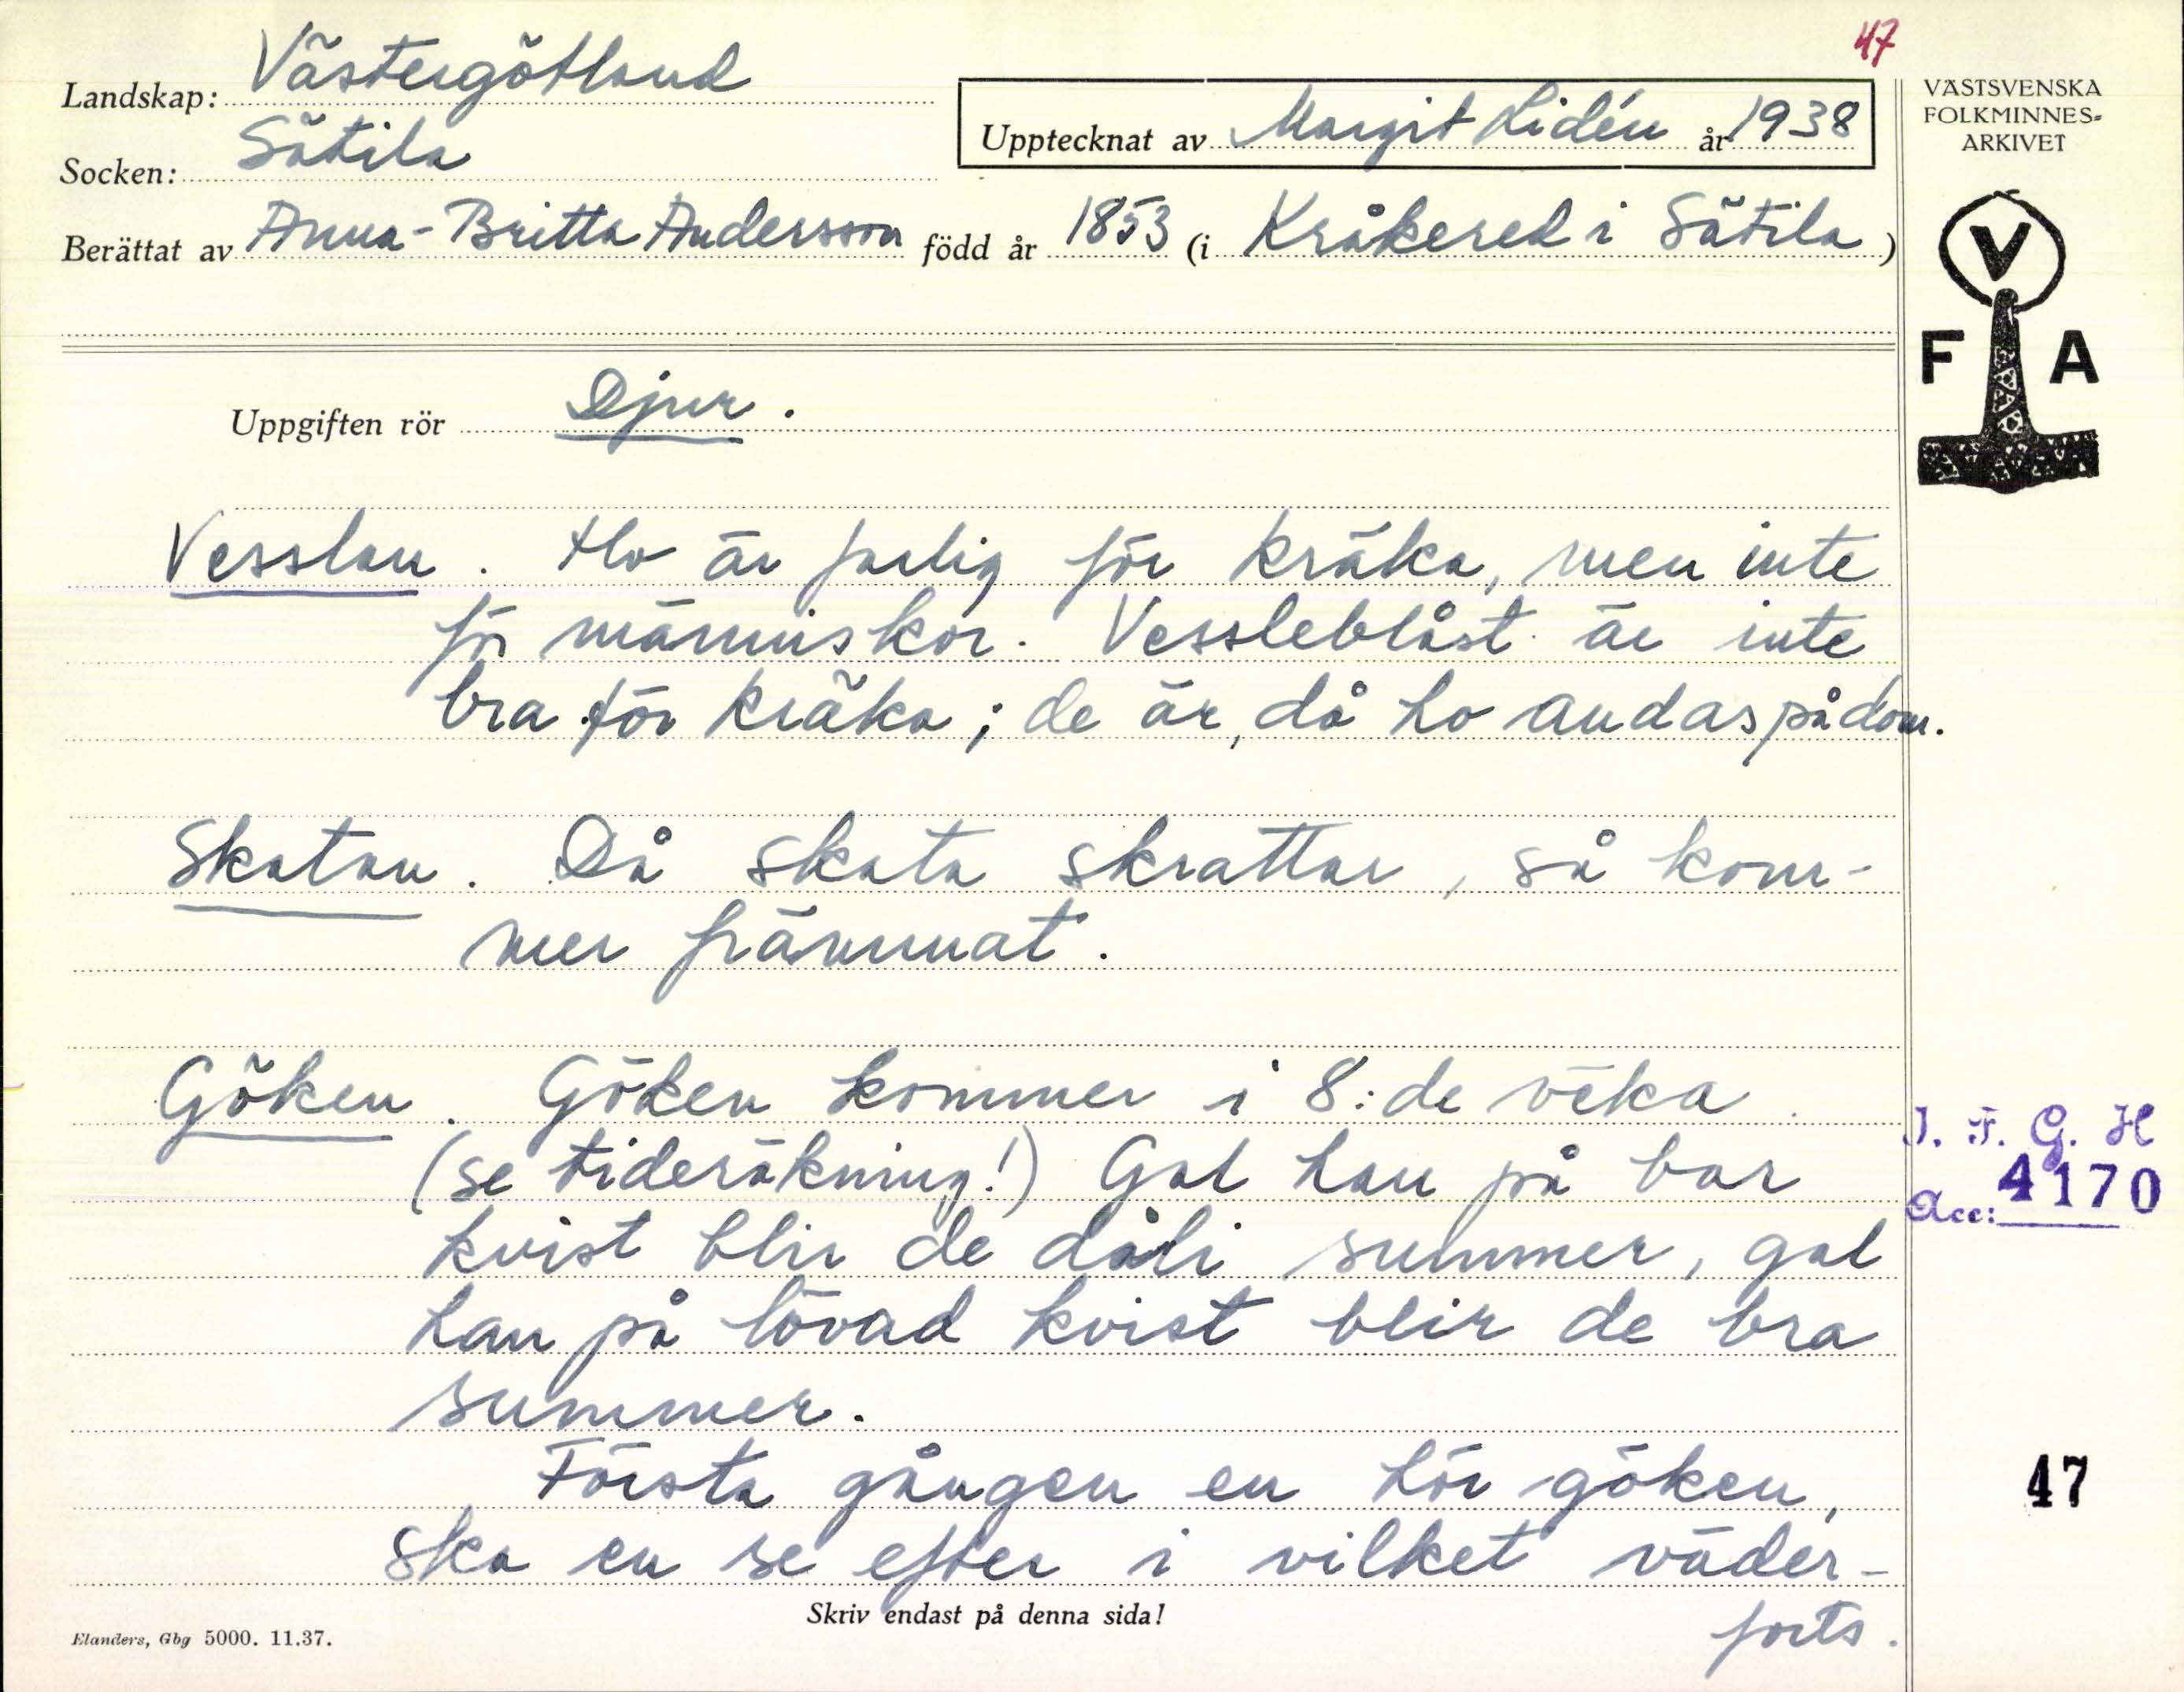 47
Landskap: Västergötland
Socken: Sätila
Upptecknat av Margit Lidén år 1938
Berättat av Anna-Britta Andersson född år 1853 (i Kråkered i Sätila)
VÄSTSVENSKA
FOLKMINNES-
ARKIVET
V
F A
Uppgiften rör Djur.
Vesslan. Ho är farlig för kräka, men inte
för människor. Vessleblåst är inte
bra för kräka; de är, då ho andas på dom.
Skatan. Då skata skrattar, så kom-
mer främmat.
Göken. Göken kommer i 8:de veka.
(se tideräkning!) Gal han på bar
kvist blir de dåli summer, gal
han på lövad kvist blir de bra
summer.
Första gången en hör göken,
ska en se efter i vilket väder-
forts.
I. F. G. H
Acc: 4170
47
Skriv endast på denna sida!
Elanders, Gbg 5000. 11.37.